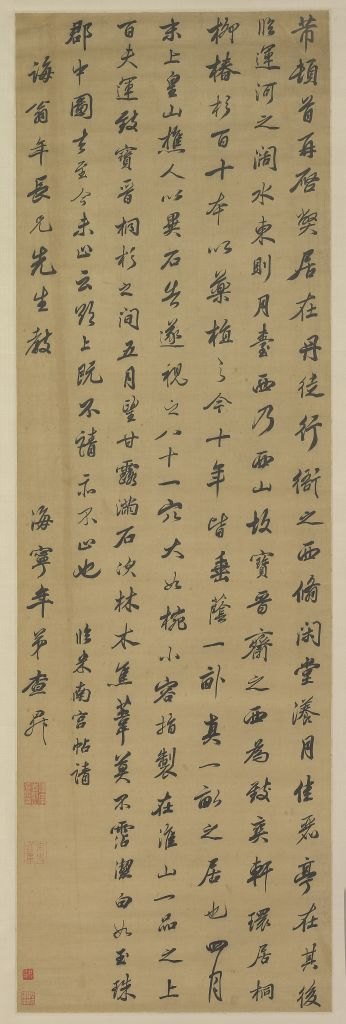 芾頓首再啓弊居在丹徒行衙之西脩閑堂漾月佳麗亭在其後
臨運河之闊水東則月臺西乃西山故寶晉齋之西為致爽軒環居桐
柳椿杉百十本以藥植之今十年皆垂蔭一畝真一畝之居也四月
末上皇山樵人以異石告遂視之八十一穴大如椀小容指製在淮山一品之上
百夫運致寶晉桐杉之間五月望甘露滿石次林木焦葦莫不霑潔白如玉珠
郡中圖去至今未止云欲上既不請亦不止也 臨米南宮帖請
誨翁年長兄先生教 海寧年弟查昇